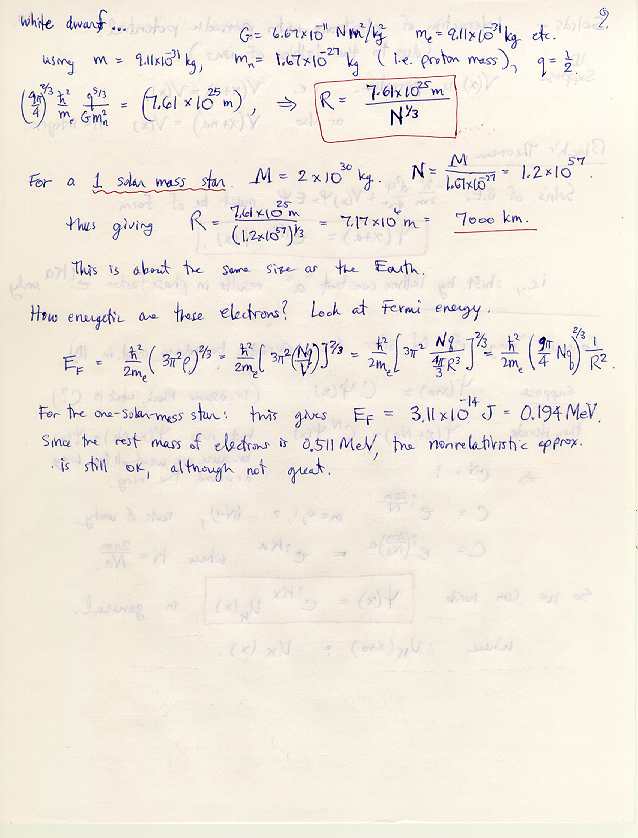 White dwarf ... G = 6.67×10⁻¹¹ N m²/kg² mₑ = 9.11×10⁻³¹ kg etc. 9.
using m = 9.11×10⁻³¹ kg, mₙ = 1.67×10⁻²⁷ kg (i.e. proton mass), q = 1/2.
(9π/4)^(2/3) ħ²/mₑ q^(5/3)/(G mₙ²) = (7.61×10²⁵ m), ⇒ R = 7.61×10²⁵ m / N^(1/3)
For a 1 solar mass star. M = 2×10³⁰ kg. N = M/(1.67×10⁻²⁷) = 1.2×10⁵⁷.
thus giving R = 7.61×10²⁵ m / (1.2×10⁵⁷)^(1/3) = 7.17×10⁶ m = 7000 km.
This is about the same size as the Earth.
How energetic are those electrons? Look at Fermi energy.
E_F = ħ²/2mₑ (3π²ρ)^(2/3) = ħ²/2mₑ [3π²(Nq/V)]^(2/3) = ħ²/2mₑ [3π² Nq/(4π/3 R³)]^(2/3) = ħ²/2mₑ (9π/4 Nq)^(2/3) 1/R².
For the one-solar-mass star: this gives E_F = 3.11×10⁻¹⁴ J = 0.194 MeV.
Since the rest mass of electrons is 0.511 MeV, the nonrelativistic approx.
is still OK, although not great.